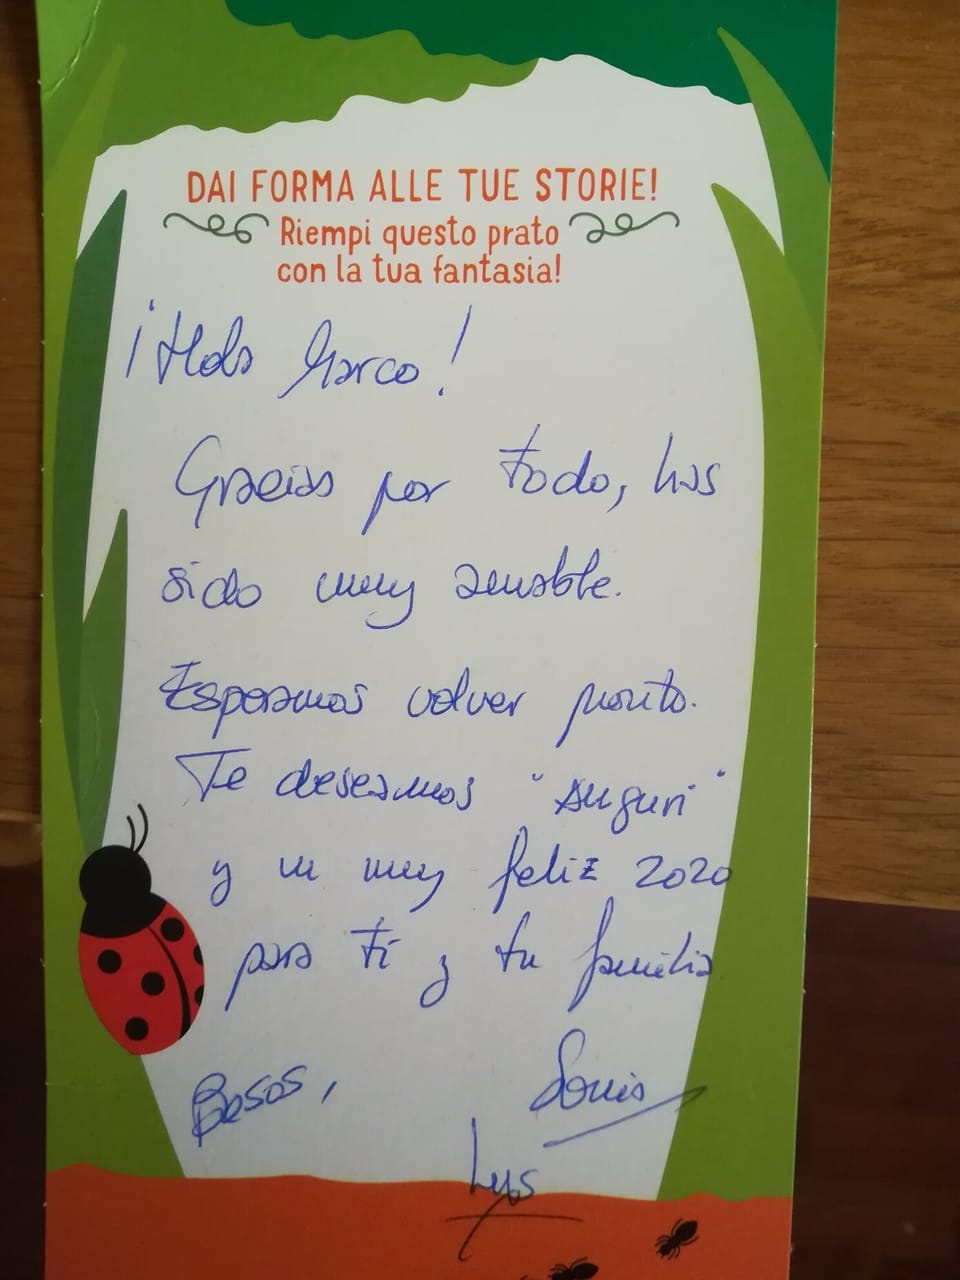 DAI FORMA ALLE TUE STORIE!
Riempi questo prato
con la tua fantasia!
¡Hola Marco!
Gracias por todo, has
sido muy amable.
Esperamos volver pronto.
Te deseamos "auguri"
y un muy feliz 2020
para ti y tu familia
Besos,
Sonia
Luis